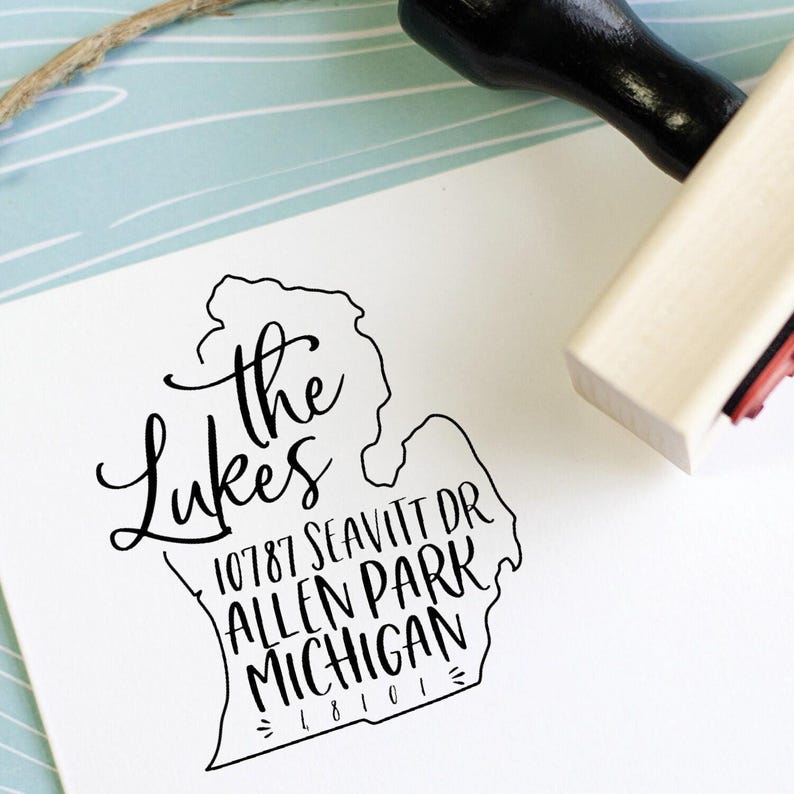 the
Lukes
10787 SEAVITT DR
ALLEN PARK
MICHIGAN
48101